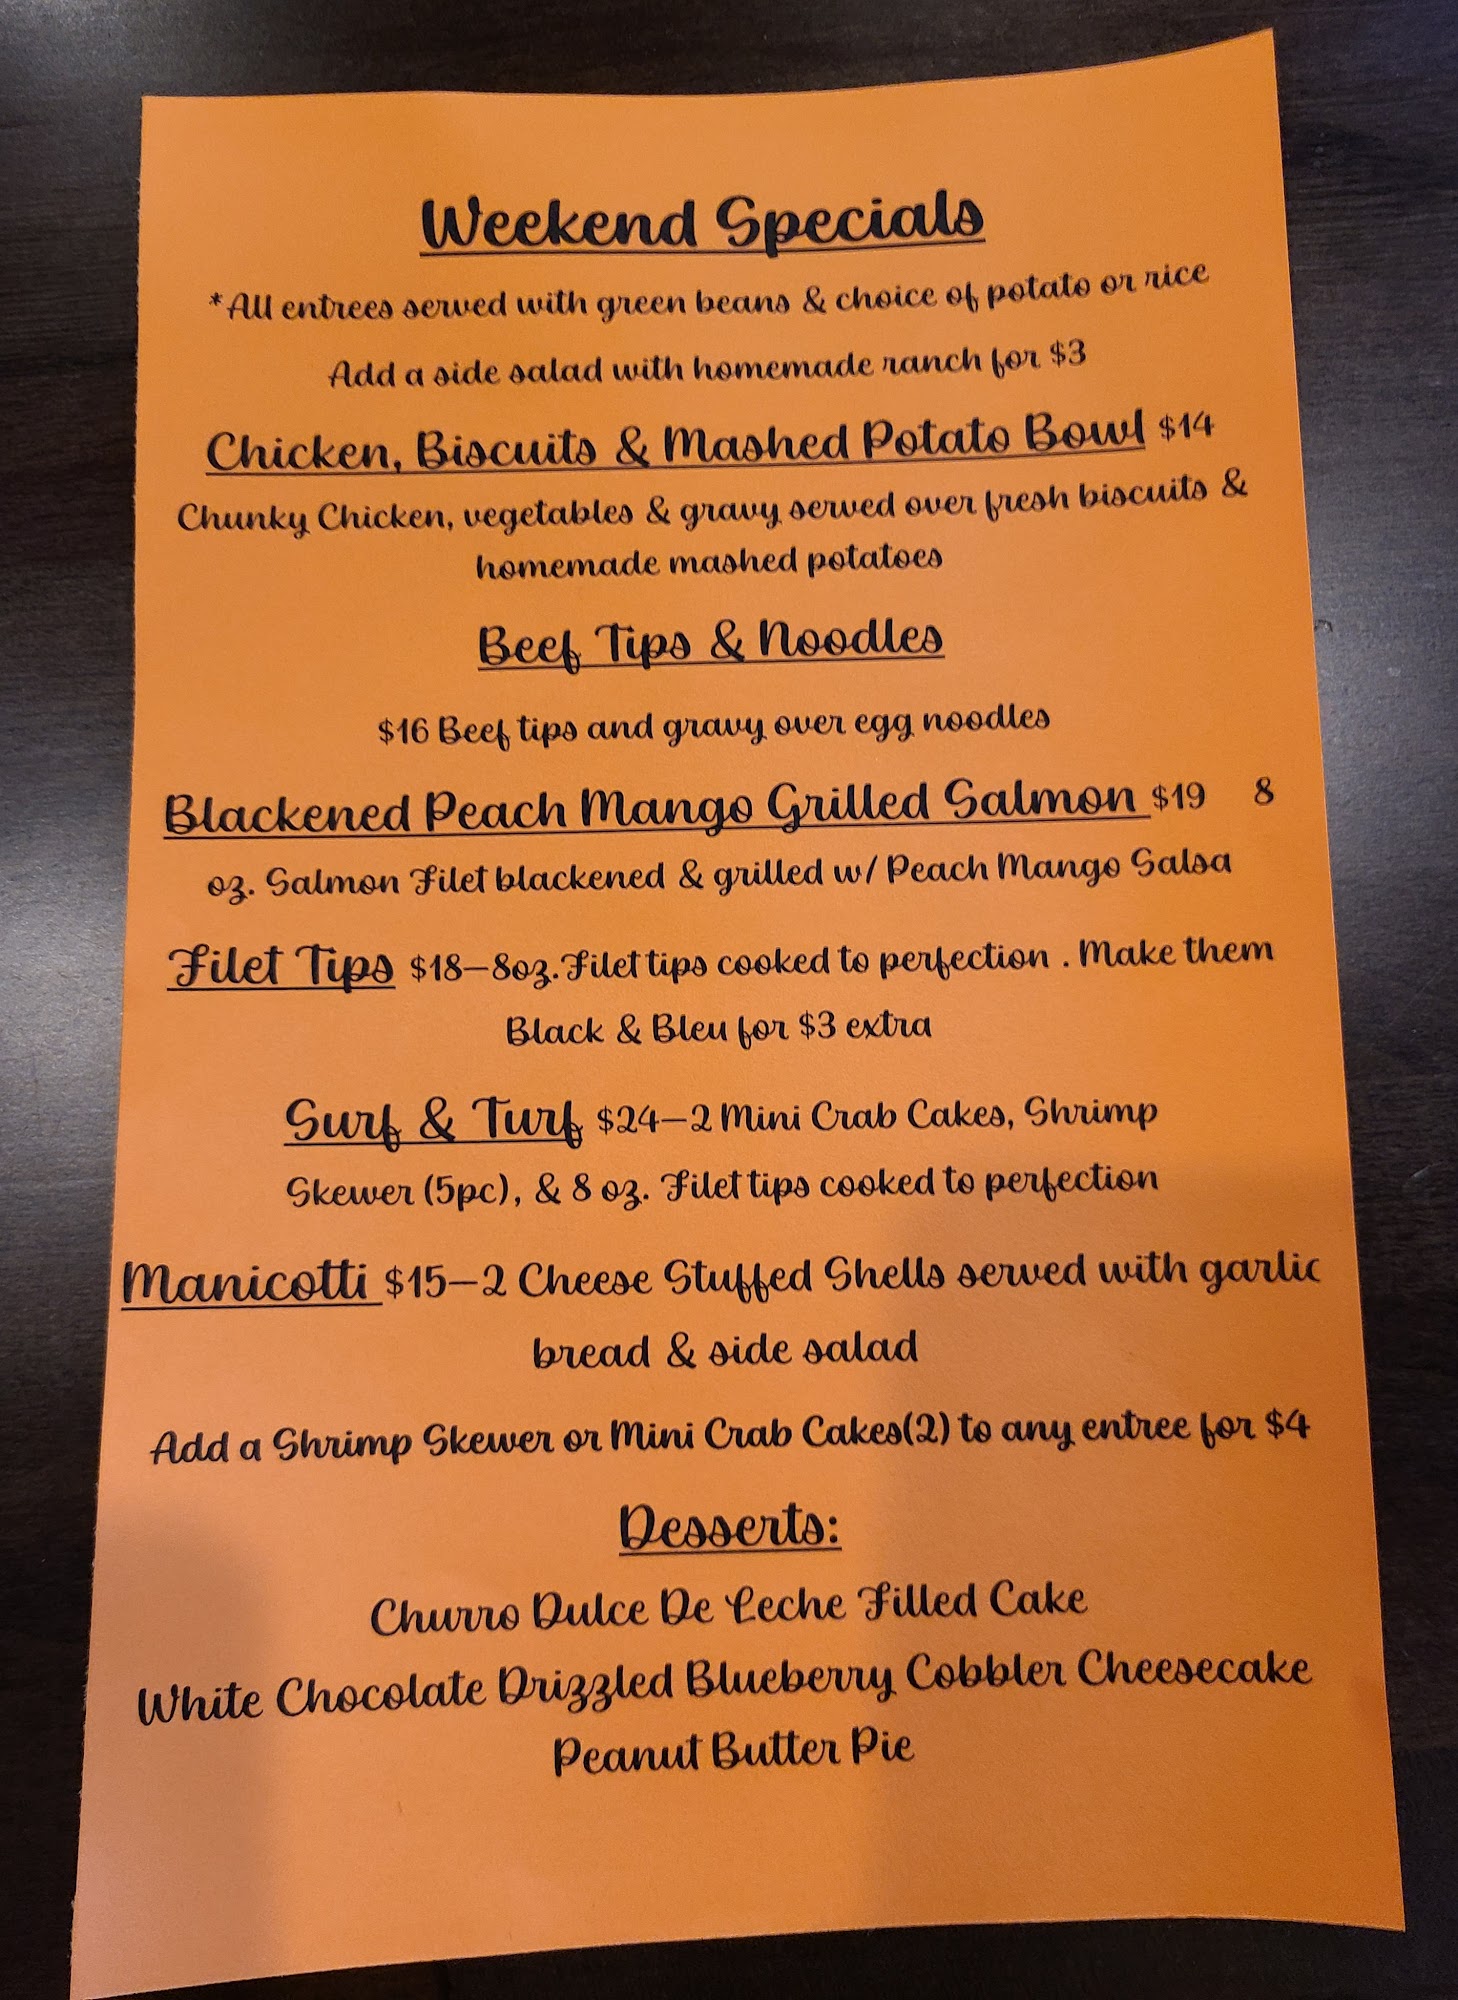 Weekend Specials
*All entrees served with green beans & choice of potato or rice
Add a side salad with homemade ranch for $3
Chicken, Biscuits & Mashed Potato Bowl $14
Chunky Chicken, vegetables & gravy served over fresh biscuits &
homemade mashed potatoes
Beef Tips & Noodles
$16 Beef tips and gravy over egg noodles
Blackened Peach Mango Grilled Salmon $19 8
oz. Salmon Filet blackened & grilled w/ Peach Mango Salsa
Filet Tips $18–8oz. Filet tips cooked to perfection . Make them
Black & Bleu for $3 extra
Surf & Turf $24–2 Mini Crab Cakes, Shrimp
Skewer (5pc), & 8 oz. Filet tips cooked to perfection
Manicotti $15–2 Cheese Stuffed Shells served with garlic
bread & side salad
Add a Shrimp Skewer or Mini Crab Cakes(2) to any entree for $4
Desserts:
Churro Dulce De Leche Filled Cake
White Chocolate Drizzled Blueberry Cobbler Cheesecake
Peanut Butter Pie